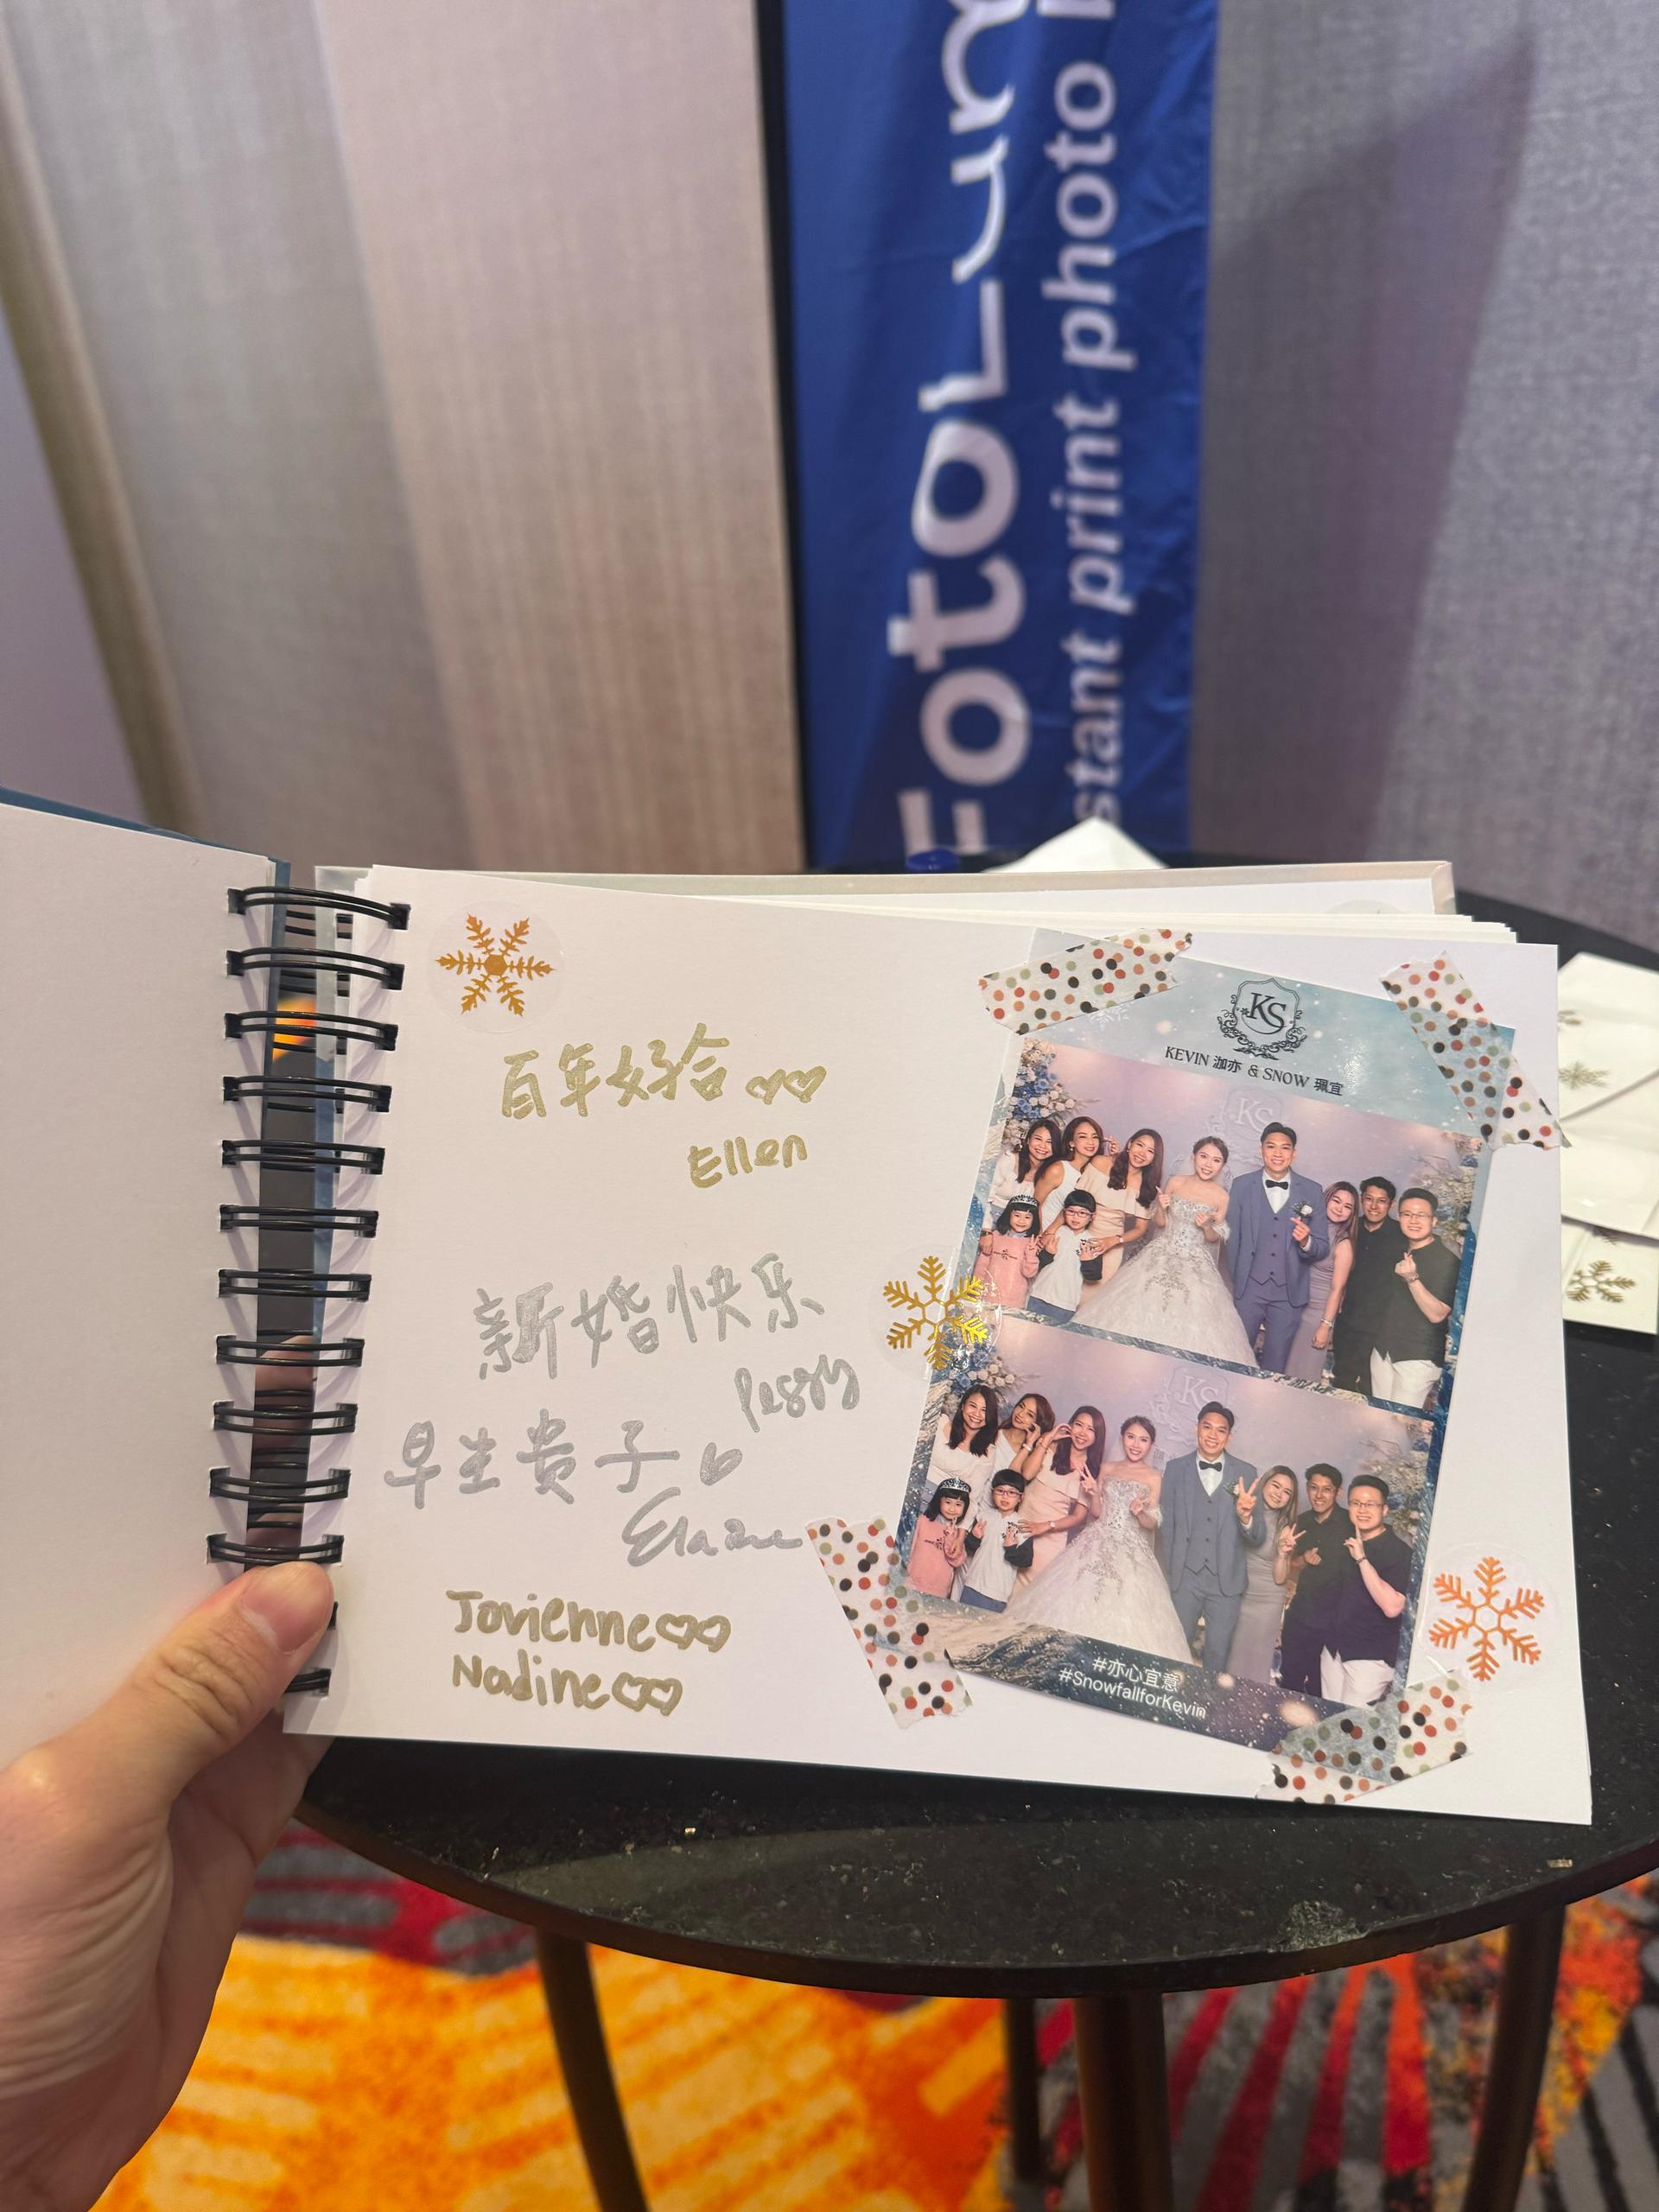 FotoLum
stant print photo
百年好合
Ellen
新婚快乐
Peggy
早生贵子
Elaine
Jovienne
Nadine
KS
KEVIN 泇亦 & SNOW 珮宜
KS
KS
#亦心宜意
#SnowfallforKevin